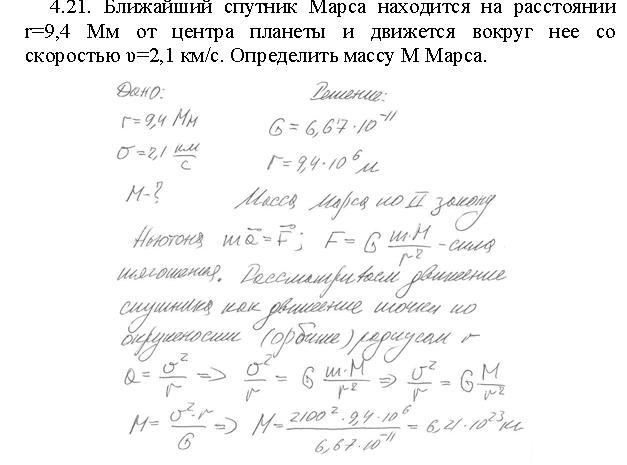 4.21. Ближайший спутник Марса находится на расстоянии
r=9,4 Мм от центра планеты и движется вокруг нее со
скоростью υ=2,1 км/с. Определить массу М Марса.
Дано: Решение:
r = 9,4 Мм G = 6,67·10^-11
υ = 2,1 км/с r = 9,4·10^6 м
М - ? Масса Марса по II закону
Ньютона ma⃗ = F⃗; F = G m·M/r² - сила
тяготения. Рассматриваем движение
спутника как движение точки по
окружности (орбите) радиусом r
a = υ²/r => υ²/r = G m·M/r² => υ²/r = G M/r²
M = υ²·r/G => M = 2100²·9,4·10^6/6,67·10^-11 = 6,21·10^23 кг